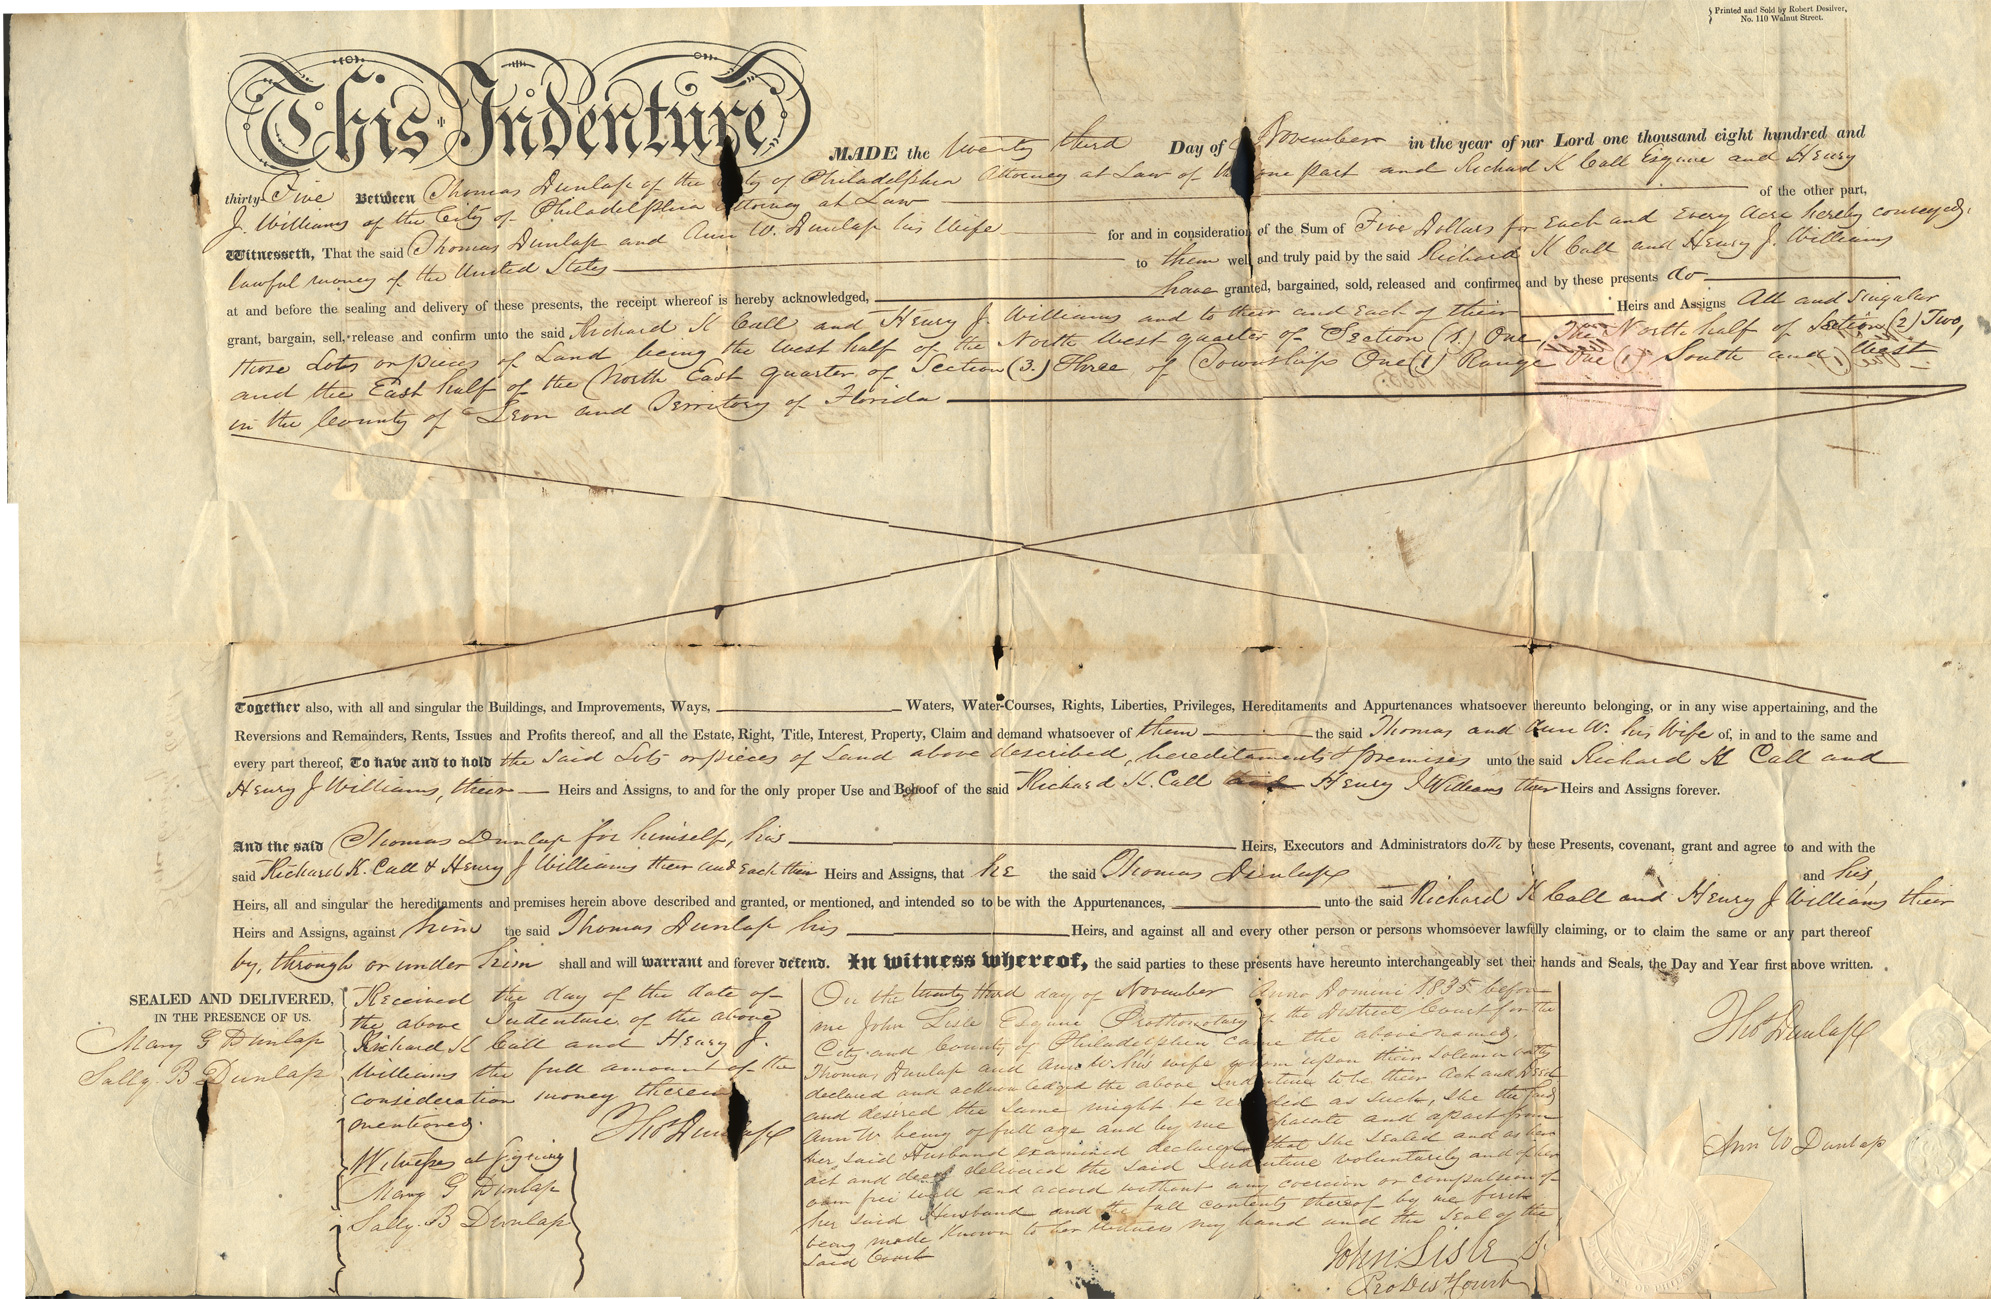 Printed and Sold by Robert Desilver,
No. 110 Walnut Street.
This Indenture MADE the twenty third Day of November in the year of our Lord one thousand eight hundred and
thirty Five Between Thomas Dunlap of the City of Philadelphia Attorney at Law of the one part and Richard K Call Esquire and Henry
J. Williams of the City of Philadelphia Attorney at Law of the other part,
Witnesseth, That the said Thomas Dunlap and Ann W. Dunlap his Wife for and in consideration of the Sum of Five Dollars for Each and Every Acre hereby conveyed,
lawful money of the United States to them well and truly paid by the said Richard K Call and Henry J. Williams
at and before the sealing and delivery of these presents, the receipt whereof is hereby acknowledged, have granted, bargained, sold, released and confirmed and by these presents do
grant, bargain, sell, release and confirm unto the said Richard K Call and Henry J. Williams and to their and Each of their Heirs and Assigns All and Singular
those Lots or pieces of Land being the West half of the North West quarter of Section (1.) One, The North half of Section (2) Two,
and the East half of the North East quarter of Section (3.) Three of Townships One (1) Range One (1) South and West
in the County of Leon and Territory of Florida
Together also, with all and singular the Buildings, and Improvements, Ways, Waters, Water-Courses, Rights, Liberties, Privileges, Hereditaments and Appurtenances whatsoever thereunto belonging, or in any wise appertaining, and the
Reversions and Remainders, Rents, Issues and Profits thereof, and all the Estate, Right, Title, Interest, Property, Claim and demand whatsoever of them the said Thomas and Ann W. his Wife of, in and to the same and
every part thereof, To have and to hold the said Lots or pieces of Land above described, hereditaments & premises unto the said Richard K Call and
Henry J Williams, their Heirs and Assigns, to and for the only proper Use and Behoof of the said Richard K. Call and Henry J Williams their Heirs and Assigns forever.
And the said Thomas Dunlap for himself, his Heirs, Executors and Administrators doth by these Presents, covenant, grant and agree to and with the
said Richard K. Call & Henry J Williams their and each their Heirs and Assigns, that he the said Thomas Dunlap and his,
Heirs, all and singular the hereditaments and premises herein above described and granted, or mentioned, and intended so to be with the Appurtenances, unto the said Richard K Call and Henry J Williams their
Heirs and Assigns, against him the said Thomas Dunlap his Heirs, and against all and every other person or persons whomsoever lawfully claiming, or to claim the same or any part thereof
by, through or under him shall and will warrant and forever defend. In witness whereof, the said parties to these presents have hereunto interchangeably set their hands and Seals, the Day and Year first above written.
SEALED AND DELIVERED,
IN THE PRESENCE OF US.
Mary G Dunlap
Sally. B Dunlap
Received the day of the date of
the above Indenture of the above
Richard K Call and Henry J.
Williams the full amount of the
consideration money therein
mentioned.
Thos Dunlap
Witness at Signing
Mary G Dunlap
Sally. B Dunlap
On the twenty third day of November Anno Domini 1835 before
me John Lisle Esquire Prothonotary of the District Court for the
City and County of Philadelphia came the above named,
Thomas Dunlap and Ann W his wife whom upon their Solemn oaths
declared and acknowledged the above Indenture to be their Act and Deed
and desired the same might be recorded as such, she the said
Ann W being of full age and by me separate and apart from
her said Husband examined declared that she sealed and as her
act and deed delivered the said Indenture voluntarily and of her
own free will and accord without any coercion or compulsion of
her said Husband and the full contents thereof by me first
being made known to her Witness my hand and the Seal of the
said Court
John Lisle
Pro Dist Court
Thos Dunlap
Ann W Dunlap